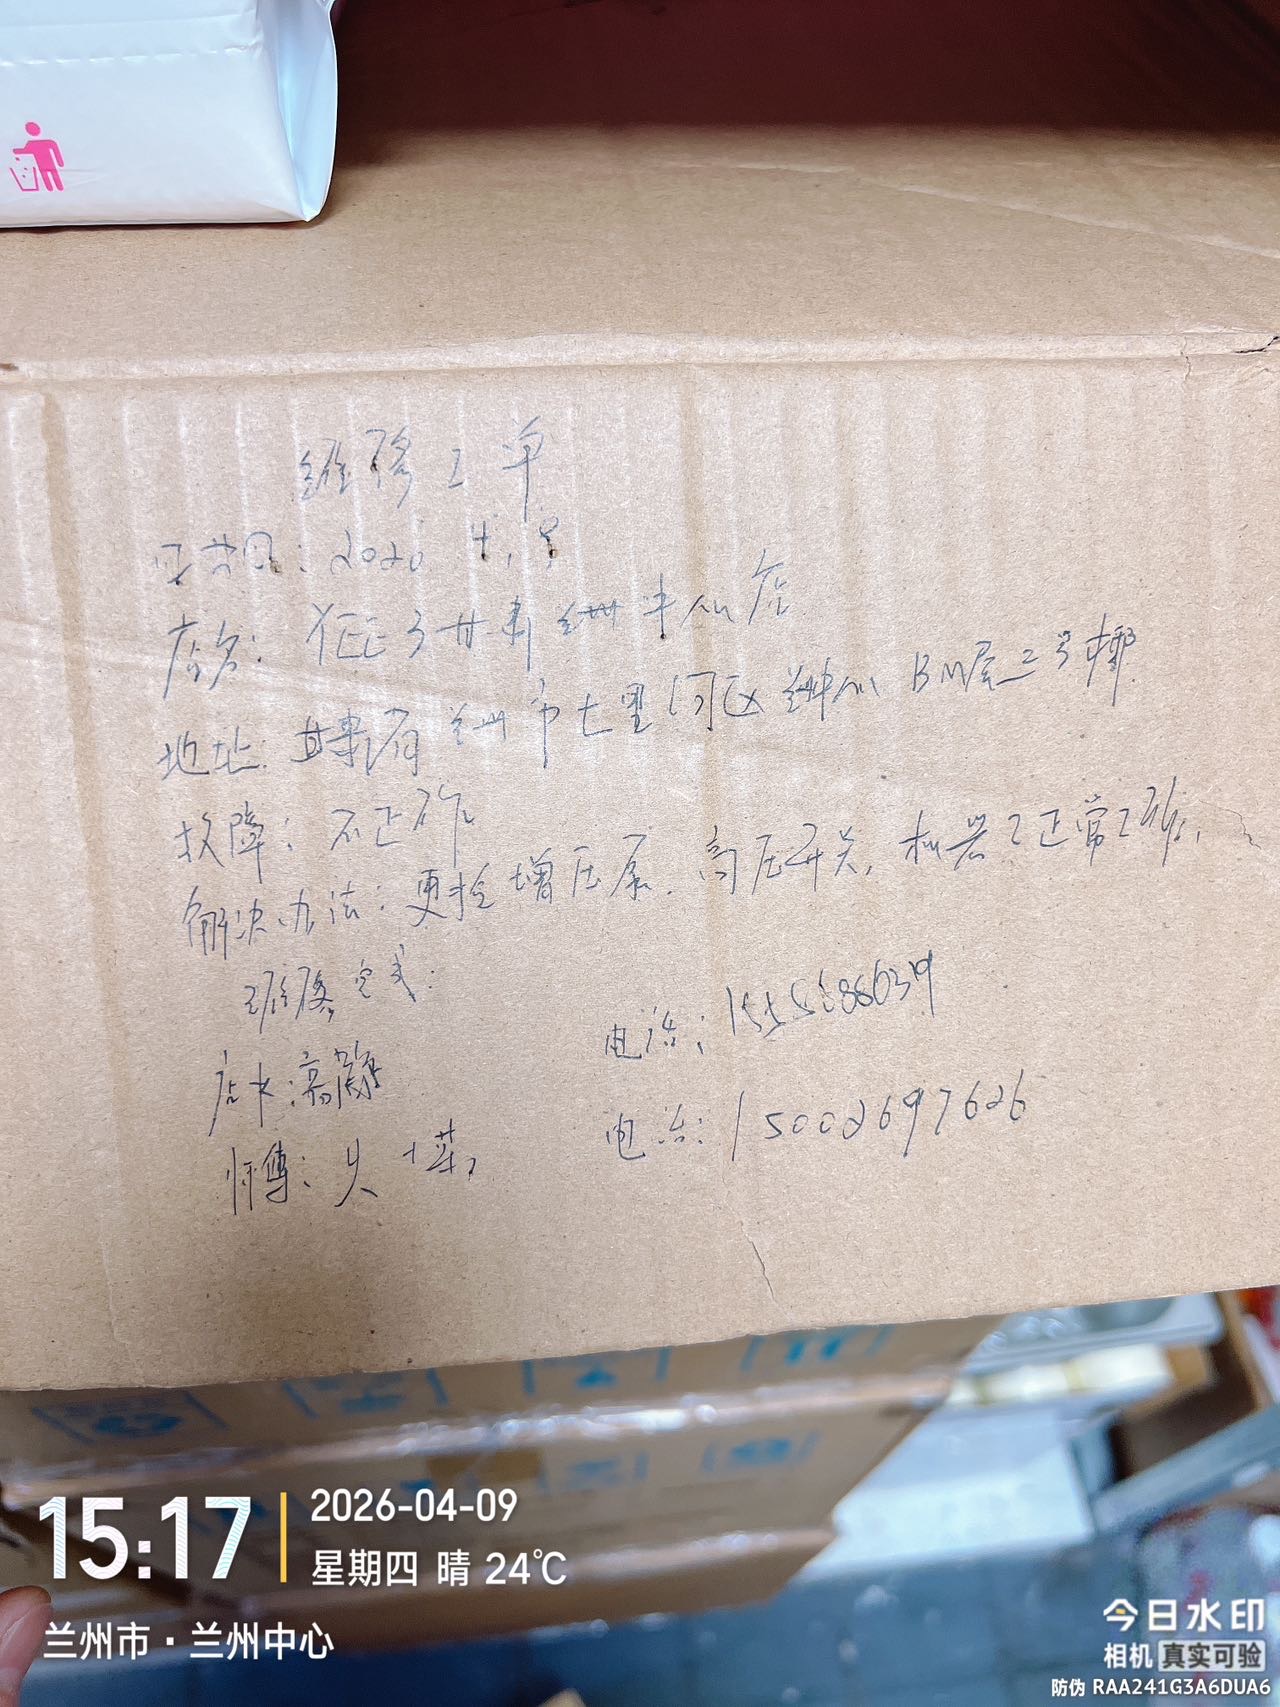 维修工单
日期: 2026 4.9
店名: YEE3甘肃兰州中心店
地址: 甘肃省兰州市七里河区兰州中心BM层二号楼
故障: 不工作
解决办法: 更换增压泵. 高压开关, 机器已正常工作,
电话: 15002697626
店长: 高
师傅:
电话:
15:17
2026-04-09
星期四 晴 24℃
兰州市·兰州中心
今日水印
相机 真实可验
防伪 RAA241G3A6DUA6